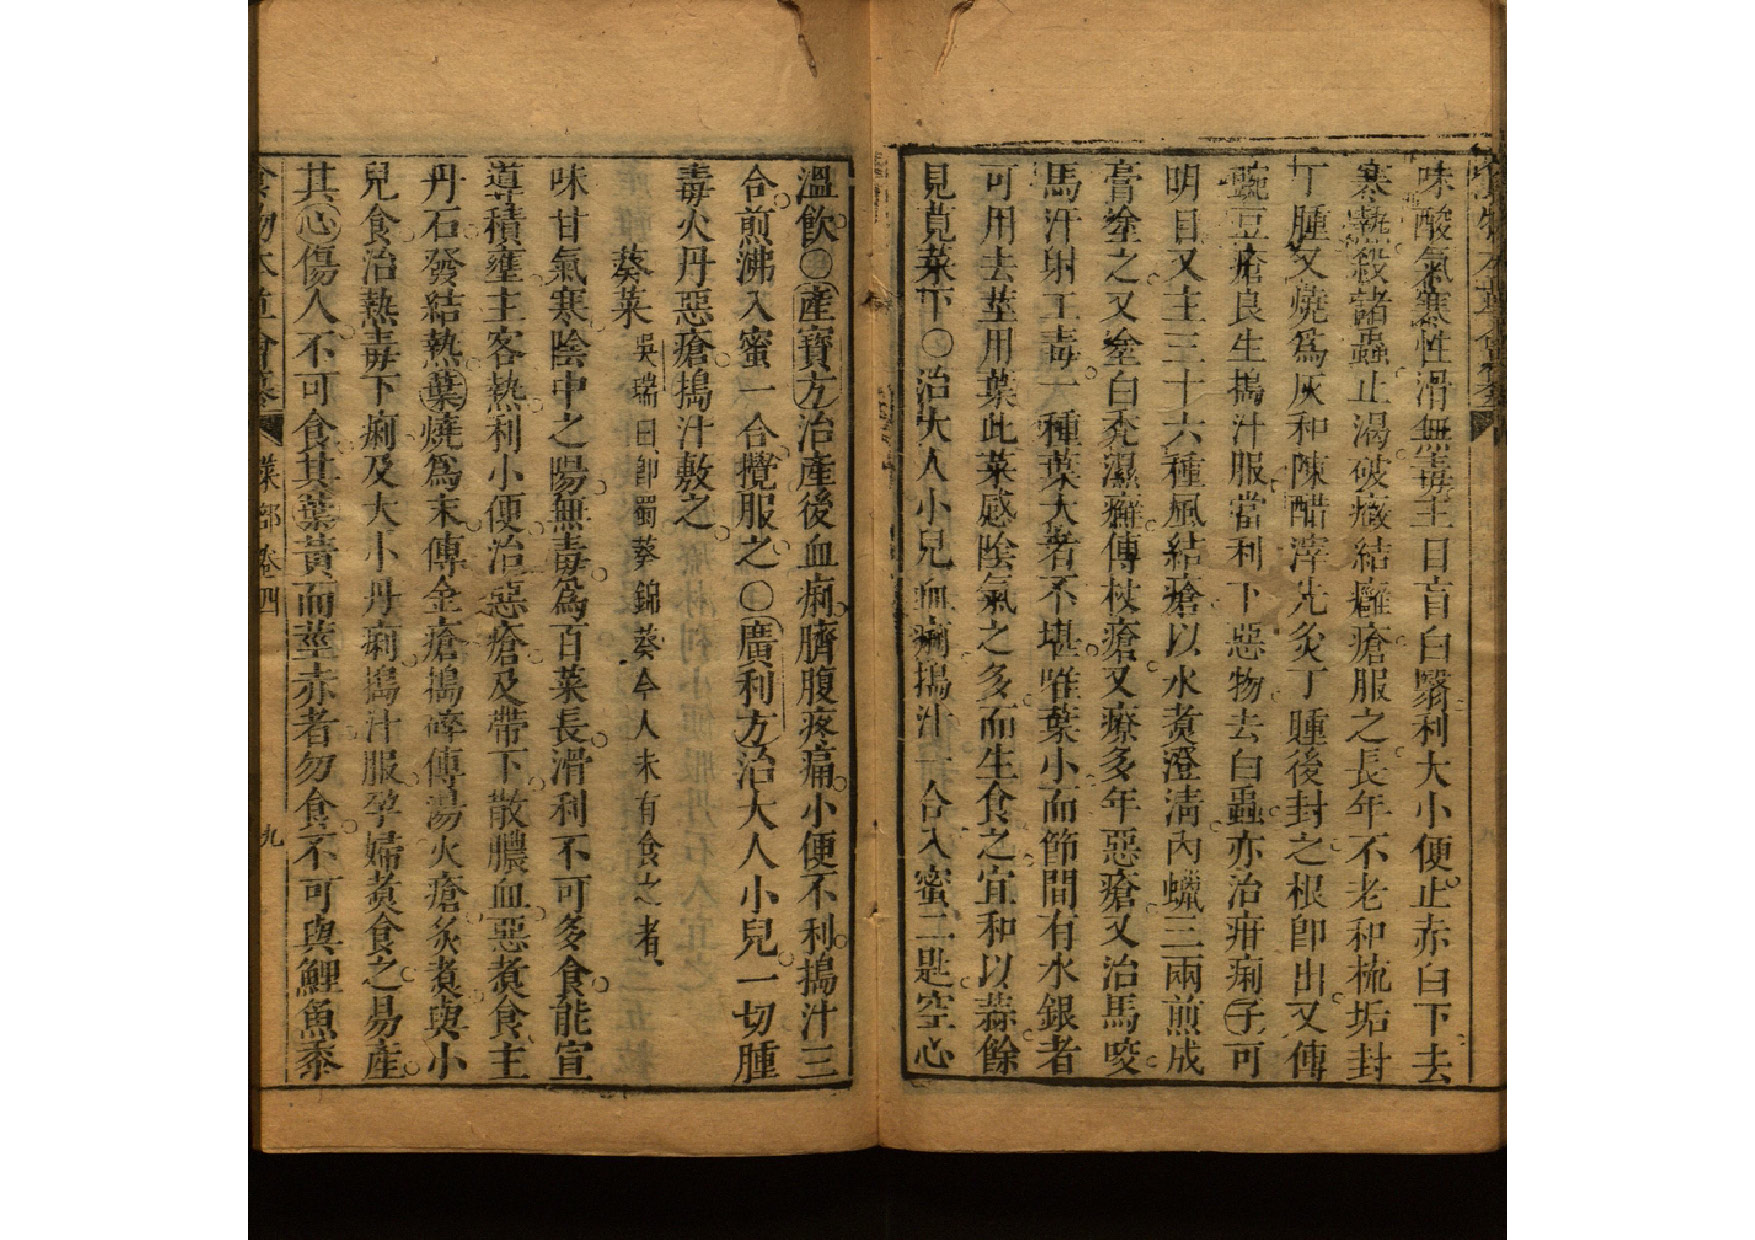 味酸氣寒性滑無毒主目盲白翳利大小便止赤白下去
寒熱殺諸蟲止渴破癥結癰瘡服之長年不老和梳垢封
丁腫又燒爲灰和陳醋滓先灸丁腫後封之根卽出又傅
豌豆瘡良生搗汁服當利下惡物去白蟲亦治疳痢子可
明目又主三十六種風結瘡以水煑澄淸內蠟三兩煎成
膏塗之又塗白禿濕癬傅杖瘡又療多年惡瘡又治馬咬
馬汗射工毒一種葉大者不堪唯葉小而節間有水銀者
可用去莖用葉此菜感陰氣之多而生食之宜和以蒜餘
見莧菜下〇治大人小兒血痢搗汁一合入蜜二匙空心
溫飮〇產寶方治產後血痢臍腹疼痛小便不利搗汁三
合煎沸入蜜一合攪服之〇廣利方治大人小兒一切腫
毒火丹惡瘡搗汁敷之
葵菜 吳瑞曰卽蜀葵錦葵今人未有食之者
味甘氣寒陰中之陽無毒爲百菜長滑利不可多食能宣
導積壅主客熱利小便治惡瘡及帶下散膿血惡煑食主
丹石發結熱葉燒爲末傅金瘡搗碎傅湯火瘡炙煑與小
兒食治熱毒下痢及大小丹痢搗汁服孕婦煑食之易產
其心傷人不可食其葉黃而莖赤者勿食不可與鯉魚黍
食物本草會纂 蔬部卷四 九